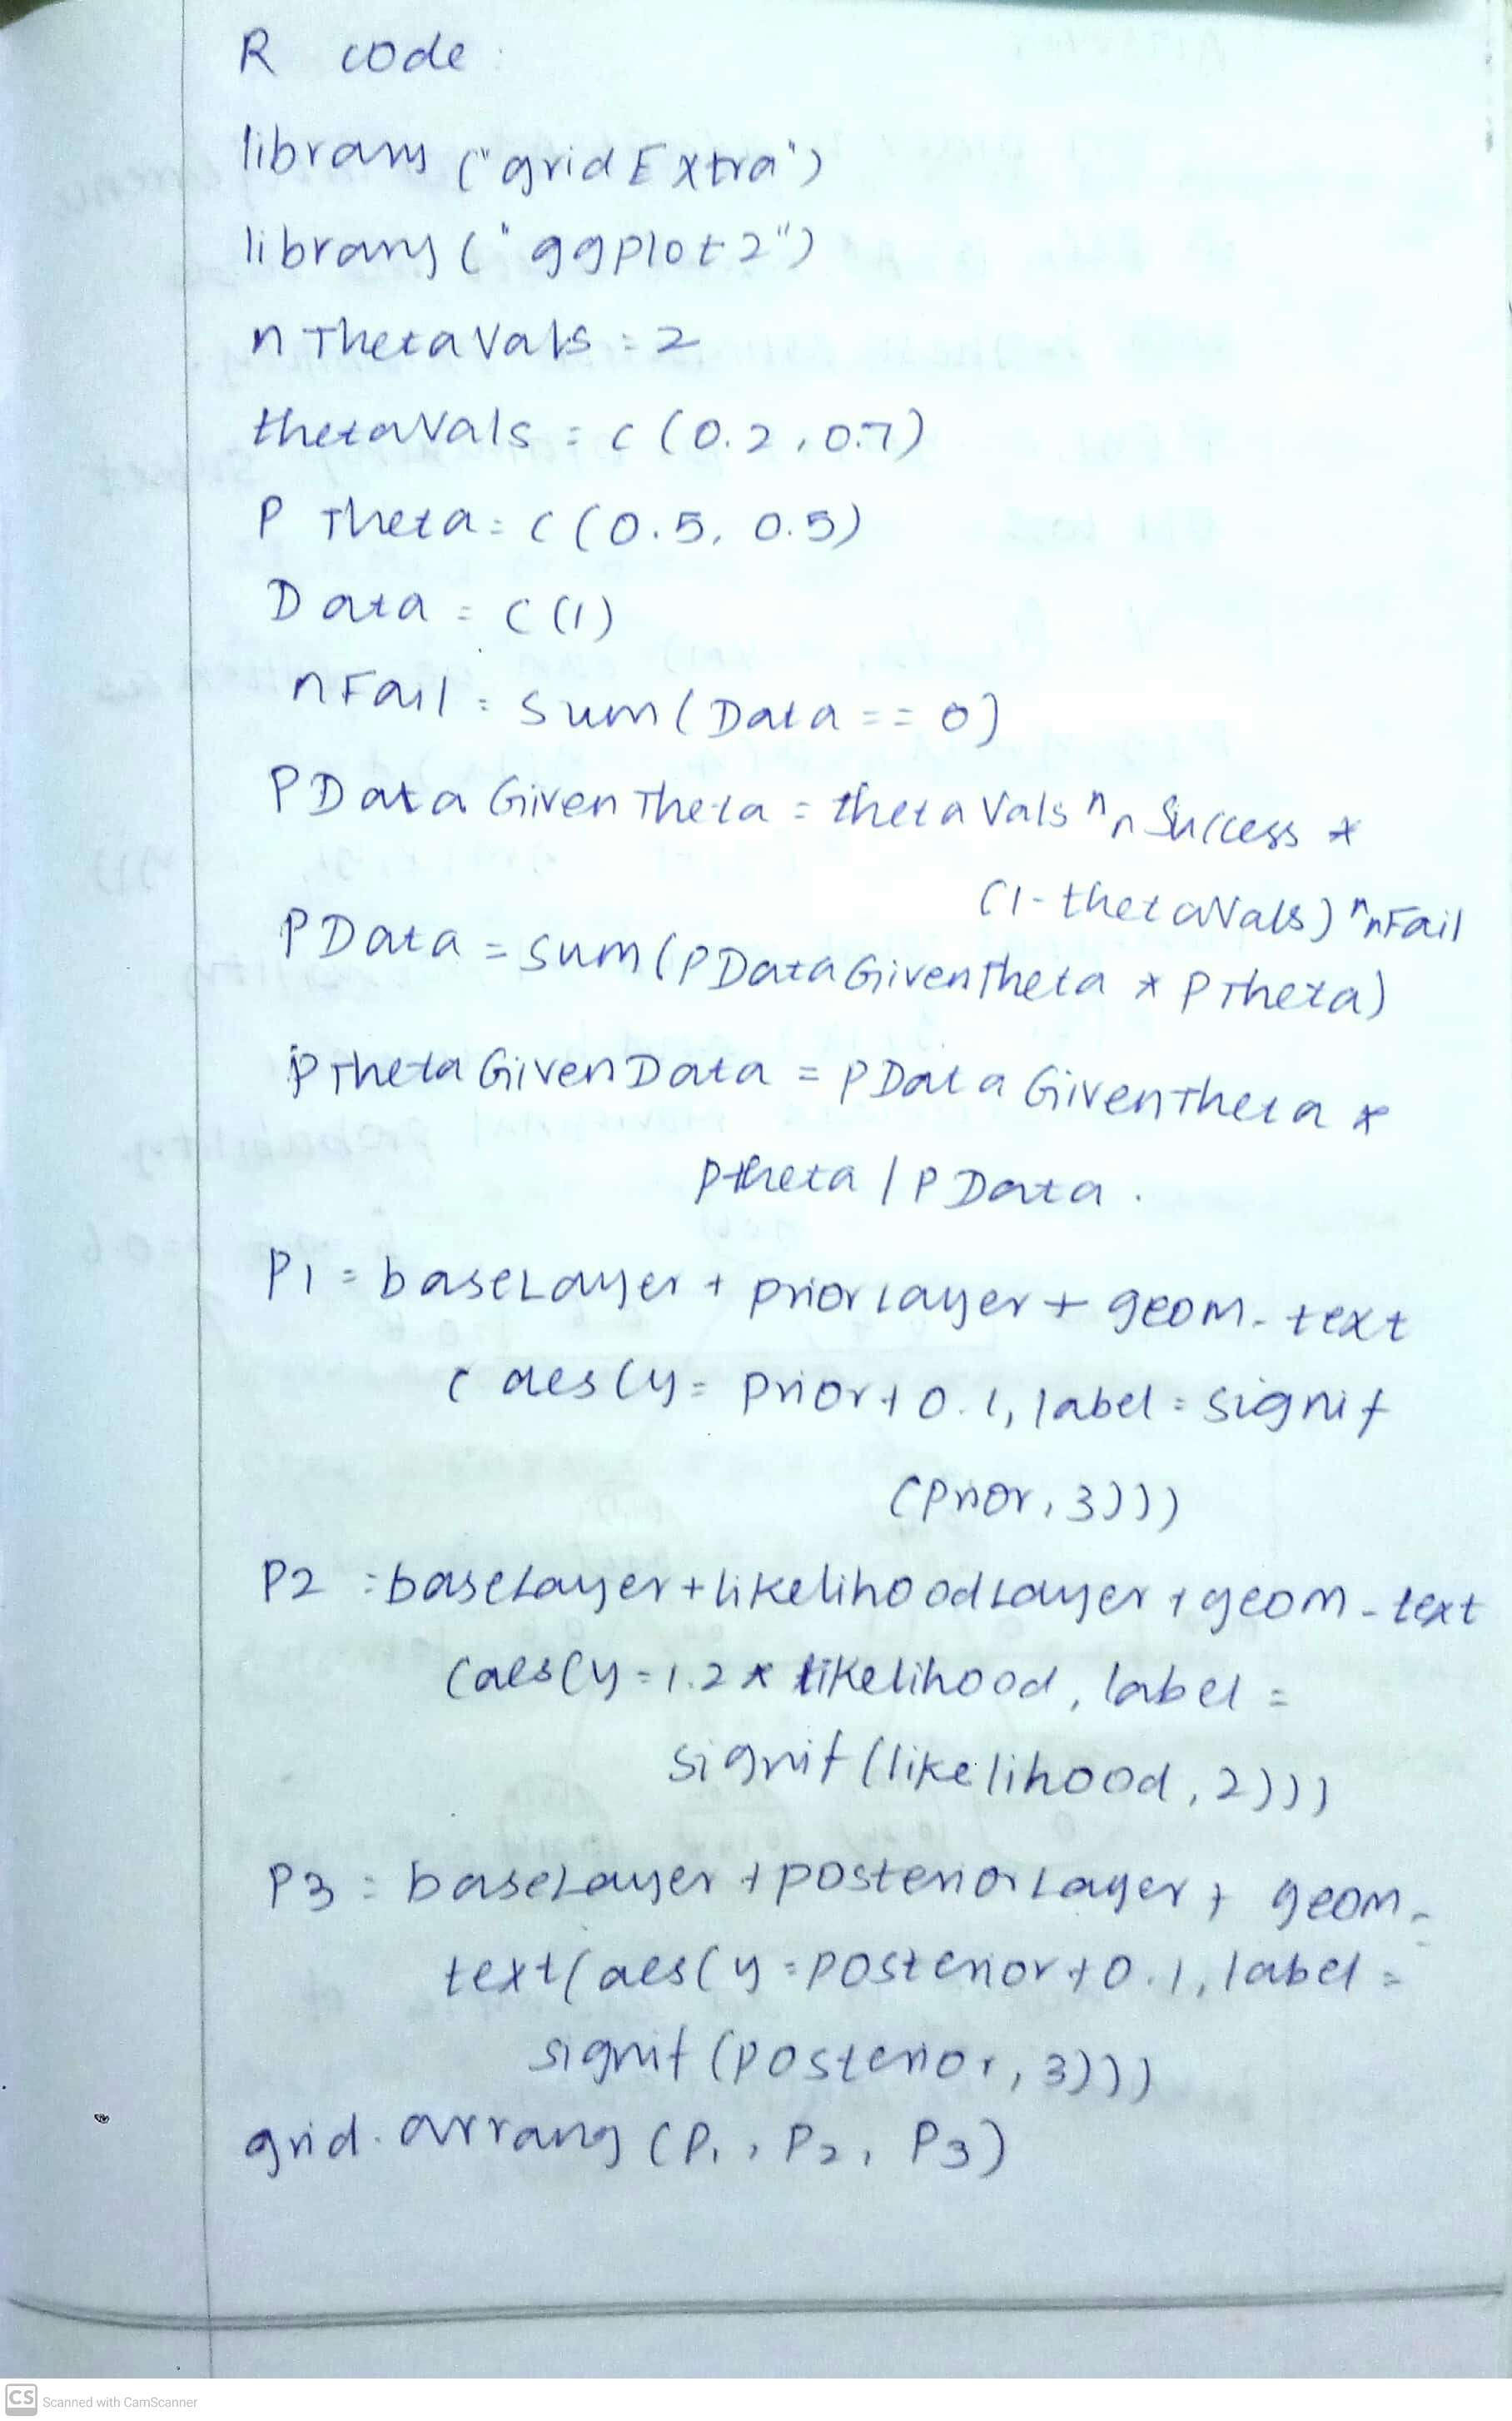 R code:
library ("gridExtra")
library ("ggplot2")
nThetaVals = 2
thetaVals = c (0.2, 0.7)
pTheta = c (0.5, 0.5)
Data = c (1)
nFail = sum (Data == 0)
pDataGivenTheta = thetaVals ^ nSuccess *
(1-thetaVals) ^ nFail
pData = sum (pDataGivenTheta * pTheta)
pThetaGivenData = pDataGivenTheta *
ptheta / pData.
P1 = baseLayer + priorlayer + geom_text
(aes(y = prior + 0.1, label = signif
(prior, 3)))
P2 = baseLayer + likelihoodLayer + geom_text
(aes(y = 1.2 * likelihood, label =
signif (likelihood, 2)))
P3 = baseLayer + posteriorLayer + geom_
text (aes(y = posterior + 0.1, label =
signif (posterior, 3)))
grid.arrang (P1, P2, P3)
CS Scanned with CamScanner